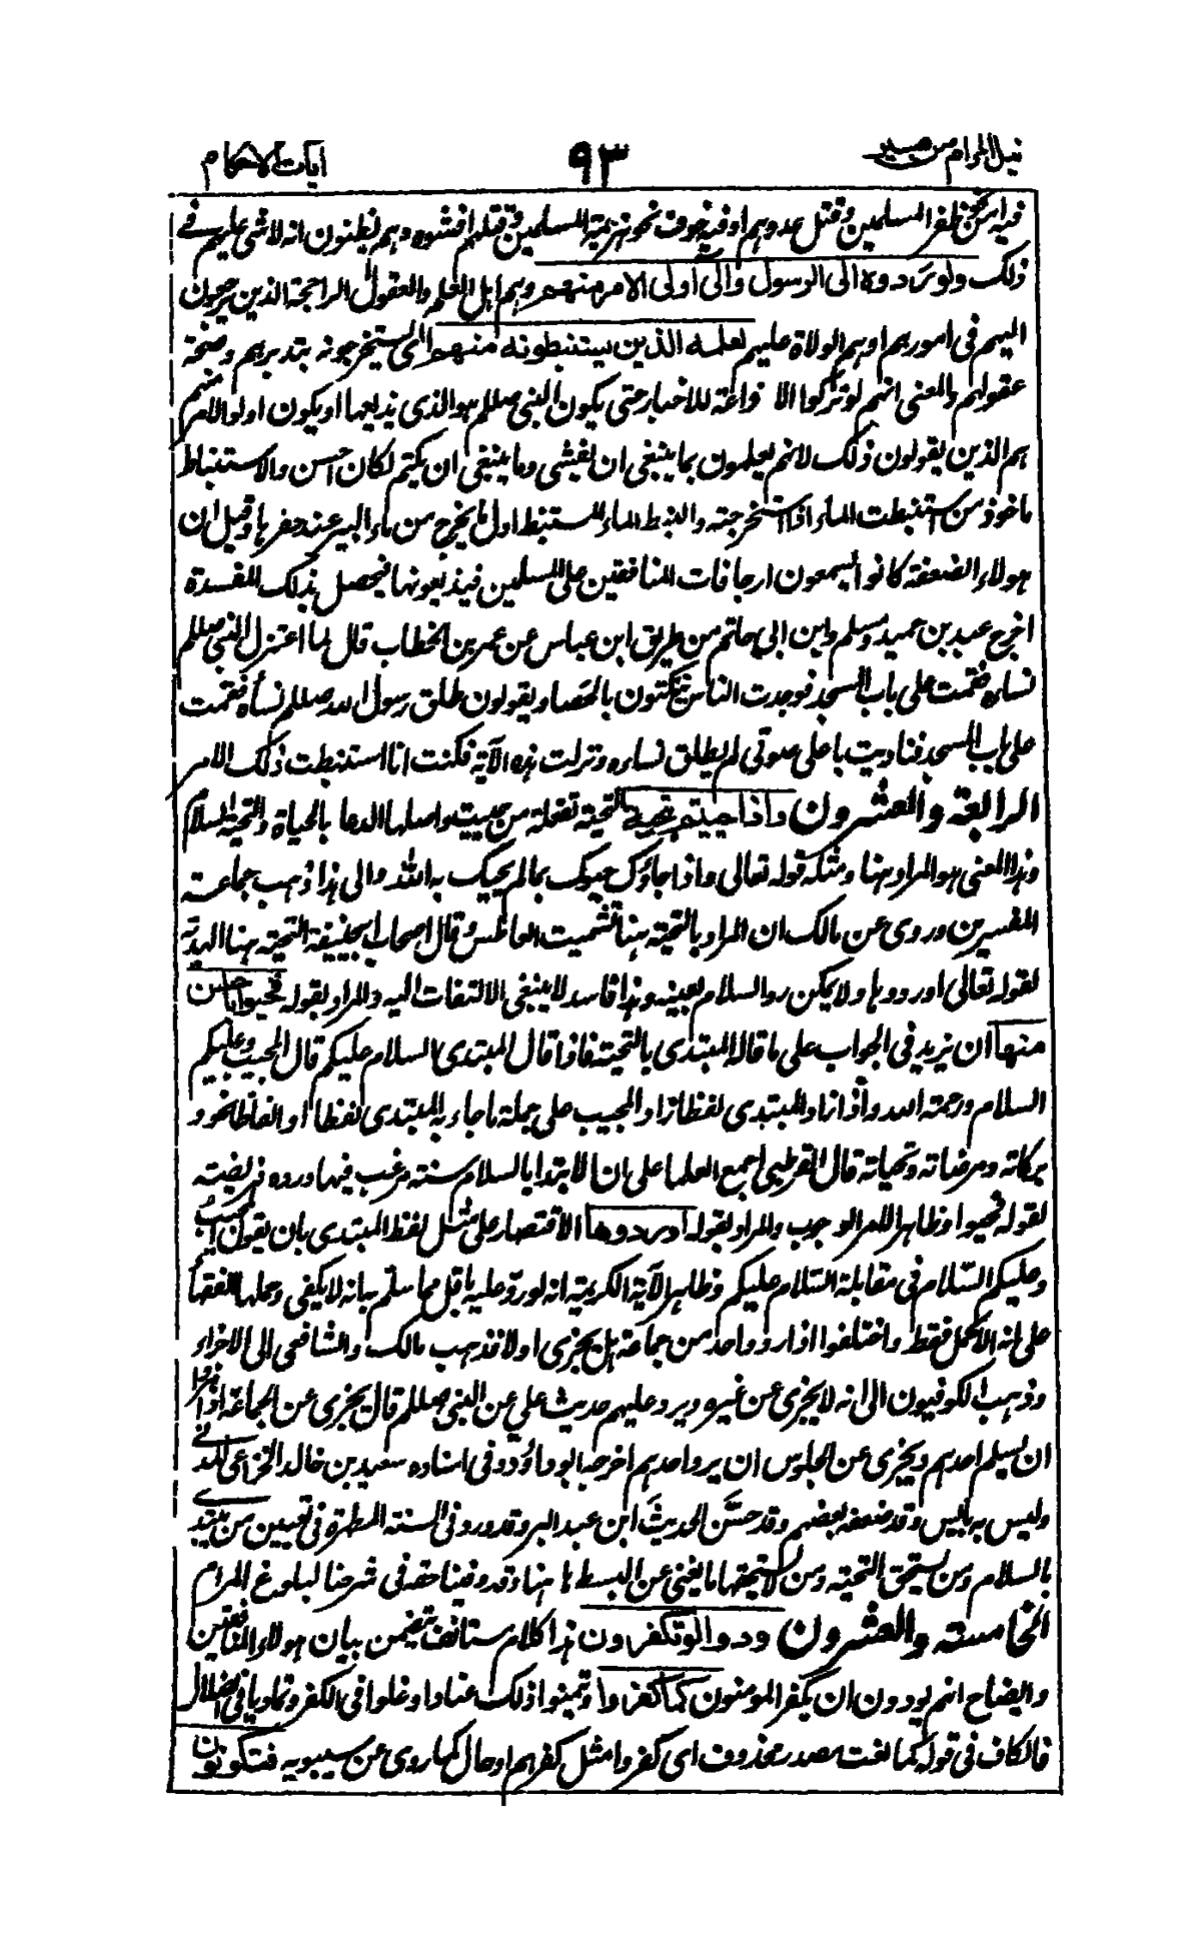 نيل المرام من تفسير ٩٣ ايات الاحكام
فيه امن نحو ظفر المسلمين وقتل عدوهم او فيه خوف نحو هزيمة المسلمين وقتلهم افشوه وهم يظنون انه لا شئ عليهم في
ذلك ولو ردوه الى الرسول والى اولى الامر منهم وهم اهل العلم والعقول الراجحة الذين يرجعون
اليهم في امورهم او هم الولاة عليهم لعلمه الذين يستنبطونه منهم اى يستخرجونه بتدبيرهم وصحة
عقولهم والمعنى انهم لو تركوا الاذاعة للاخبار حتى يكون النبى صللم هو الذى يذيعها او يكون اولو الامر منهم
هم الذين يقولون ذلك لانهم يعلمون بما ينبغى ان يفشى وما ينبغى ان يكتم لكان احسن والاستنباط
ماخوذ من استنبطت الماء اذا استخرجته والنبط الماء المستنبط اول ما يخرج من ماء البير عند حفرها وقيل ان
هولاء الضعفة كانوا يسمعون ارجافات المنافقين على المسلمين فيذيعونها فيحصل بذلك المفسدة
اخرج عبد بن حميد ومسلم وابن ابى حاتم من طريق ابن عباس عن عمر بن الخطاب قال لما اعتزل النبى صللم
نساءه قمت على باب المسجد فوجدت الناس ينكتون بالحصا ويقولون طلق رسول الله صللم نساءه فقمت
على باب المسجد فناديت باعلى صوتى لم يطلق نساءه ونزلت هذه الآية فكنت انا استنبطت ذلك الامر
الرابعة والعشرون واذا حييتم بتحية التحية تفعلة من حييت واصلها الدعا بالحياة والتحية السلام
وهذا المعنى هو المراد هنا ومثله قوله تعالى واذا جاؤك حيوك بما لم يحيك به الله والى هذا ذهب جماعة
المفسرين وروى عن مالك ان المراد بالتحية هنا تشميت العاطس وقال اصحاب ابيحنيفة التحية هنا الهدية
لقوله تعالى او ردوها ولا يمكن رد السلام بعينه وهذا فاسد لا ينبغى الالتفات اليه والمراد بقوله فحيوا باحسن
منها ان يزيد في الجواب على ما قاله المبتدى بالتحية فاذا قال المبتدى السلام عليكم قال المجيب وعليكم
السلام ورحمة الله واذا زاد المبتدى لفظا زاد المجيب على جملة ما جاء به المبتدى لفظا او الفاظا نحو و
بركاته ومرضاته وتحياته قال القرطبى اجمع العلما على ان الابتدا بالسلام سنة مرغب فيها ورده فريضة
لقوله فحيوا وظاهر الامر الوجوب والمراد بقوله او ردوها الاقتصار على مثل لفظ المبتدى بان يقول المجيب
وعليكم السلام في مقابلة السلام عليكم وظاهر الآية الكريمة انه لو رد عليه باقل مما سلم به انه لا يكفى وحملها الفقهاء
على انه الاكمل فقط واختلفوا اذا رد واحد من جماعة هل يجزى او لا فذهب مالك والشافعى الى الاجزاء
وذهب الكوفيون الى انه لا يجزى عن غيره ويرد عليهم حديث علي عن النبى صللم قال يجزى عن الجماعة اذا مروا
ان يسلم احدهم ويجزى عن الجلوس ان يرد احدهم اخرجه ابو داؤد وفى اسناده سعيد بن خالد الخزاعى المدنى
وليس به باس وقد ضعفه بعضهم وقد حسن الحديث ابن عبد البر وقد ورد فى السنة المطهرة في تعيين من يبتدى
بالسلام ومن يستحق التحية ومن لا يستحقها ما يغنى عن البسط ها هنا وقد وفينا حقه في شرحنا لبلوغ المرام
الخامسة والعشرون ودوا لو تكفرون هذا كلام مستانف يتضمن بيان حال هولاء المنافقين
وايضاح انهم يودون ان يكفر المومنون كما كفروا وتمنوا ذلك عنادا وغلوا في الكفر وتماديا في الضلال
فالكاف في قوله كما نعت مصدر محذوف اى كفروا مثل كفرهم او حال كما روى عن سيبويه فتكونون